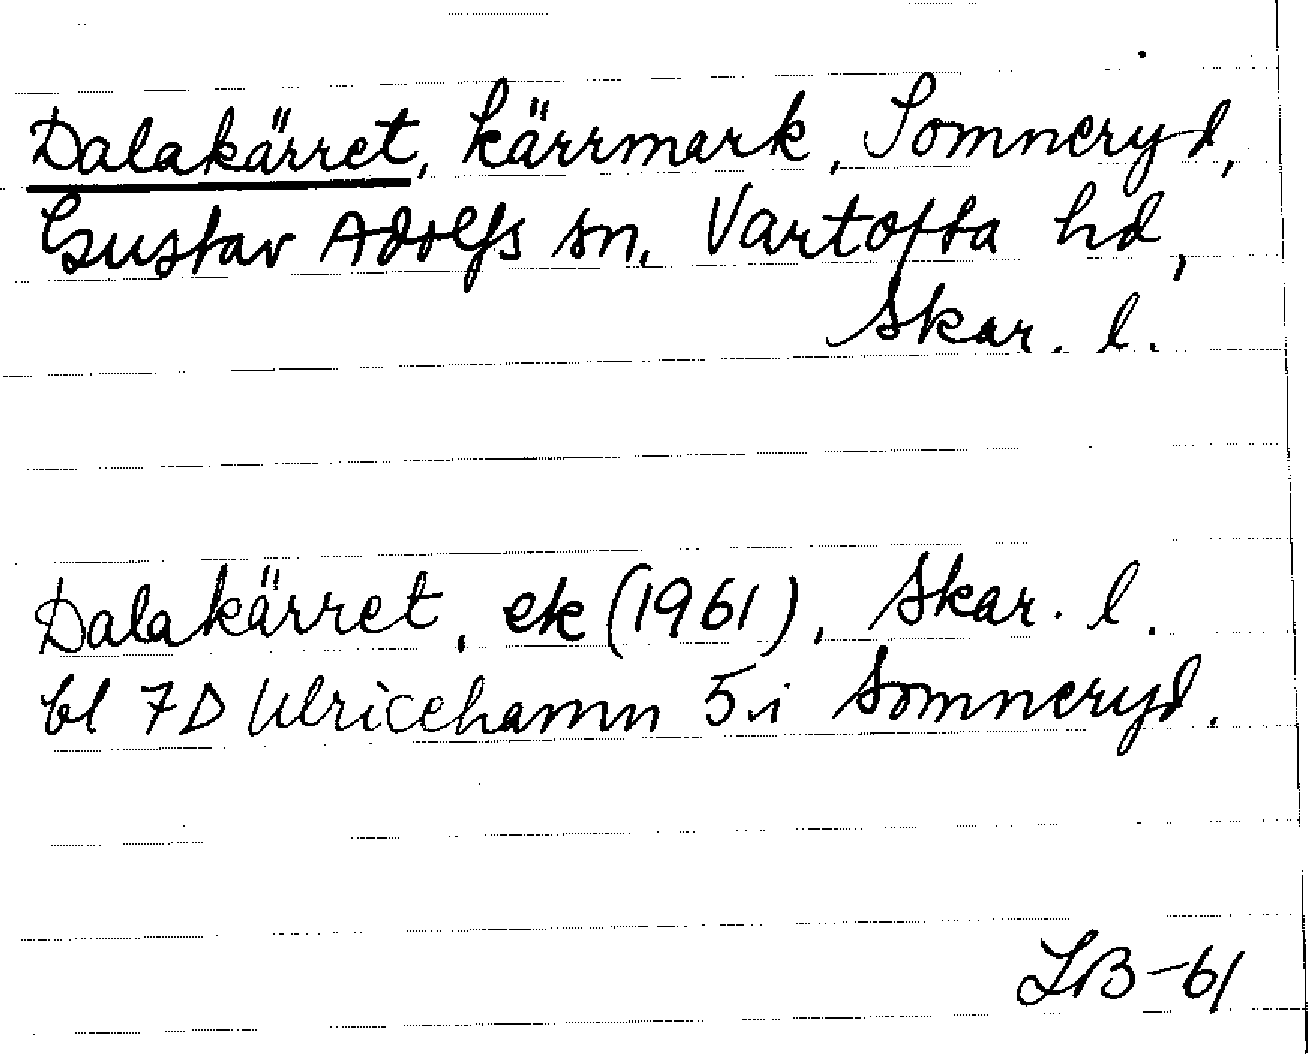 Dalakärret, kärrmark, Somneryd,
Gustav Adolfs sn, Vartofta hd,
Skar. l.
Dalakärret, ek (1961), Skar. l.
bl 7D Ulricehamn 5i Somneryd.
LB-61